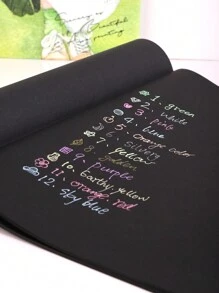 1. green
2. white
3. pink
4. blue
5. Orange color
6. silvery
7. yellow
8. golden
9. purple
10. Earthy yellow
11. orange red
12. sky blue